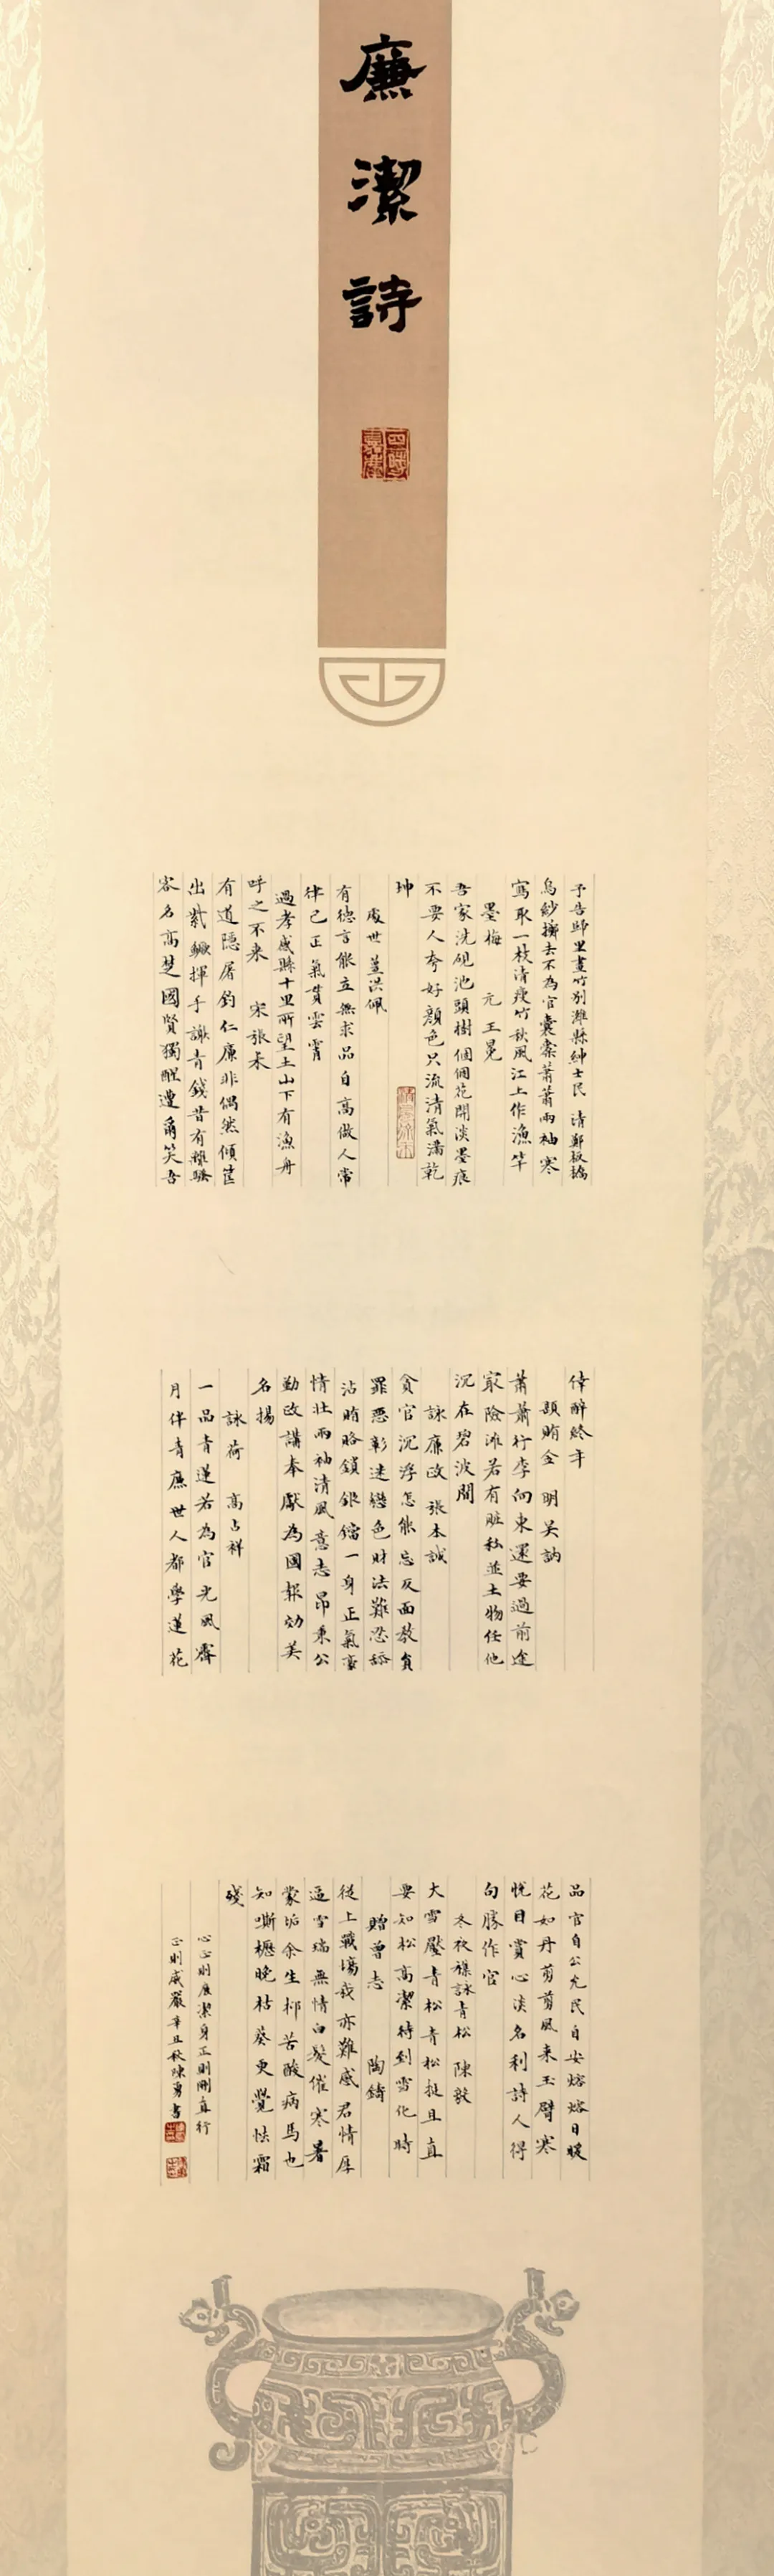 廉潔詩
四時嘉慶
予告歸里畫竹別濰縣紳士民 清 鄭板橋
烏紗擲去不為官囊橐蕭蕭兩袖寒
寫取一枝清瘦竹秋風江上作漁竿
墨梅 元 王冕
吾家洗硯池頭樹個個花開淡墨痕
不要人夸好顏色只流清氣滿乾
坤
處世 董洪佩
有德言能立無求品自高做人常
律己正氣貫雲霄
過孝感縣十里所望土山下有漁舟
呼之不來 宋 張耒
有道隱屠釣仁廉非偶然傾筐
出紫鱖揮手謝青錢昔有離騷
客名高楚國賢獨醒遭爾笑吾
倖醉終年
題賄金 明 吴訥
蕭蕭行李向東還要過前途
最險灘若有贓私並土物任他
沉在碧波間
詠廉政 張本誠
貪官沉浮怎能忘反面教員
罪惡彰迷戀色財法難忍舔
沾賄賂鎖銀鐺一身正氣豪
情壯兩袖清風意志昂秉公
勤政講奉獻為國報効美
名揚
詠荷 高占祥
一品青蓮若為官光風霽
月伴青廉世人都學蓮花
品官自公允民自安熔熔日暖
花如丹剪剪風來玉臂寒
悦目賞心淡名利詩人得
句勝作官
冬夜襍詠青松 陳毅
大雪壓青松青松挺且直
要知松高潔待到雪化時
贈曾志 陶鑄
從上戰場我亦難感君情厚
逼雲端無情白髮催寒暑
蒙垢余生抑苦酸病馬也
知嘶櫪晚枯葵更覺怯霜
殘
心正則廉潔身正則剛直行
正則威嚴辛丑秋陳勇書